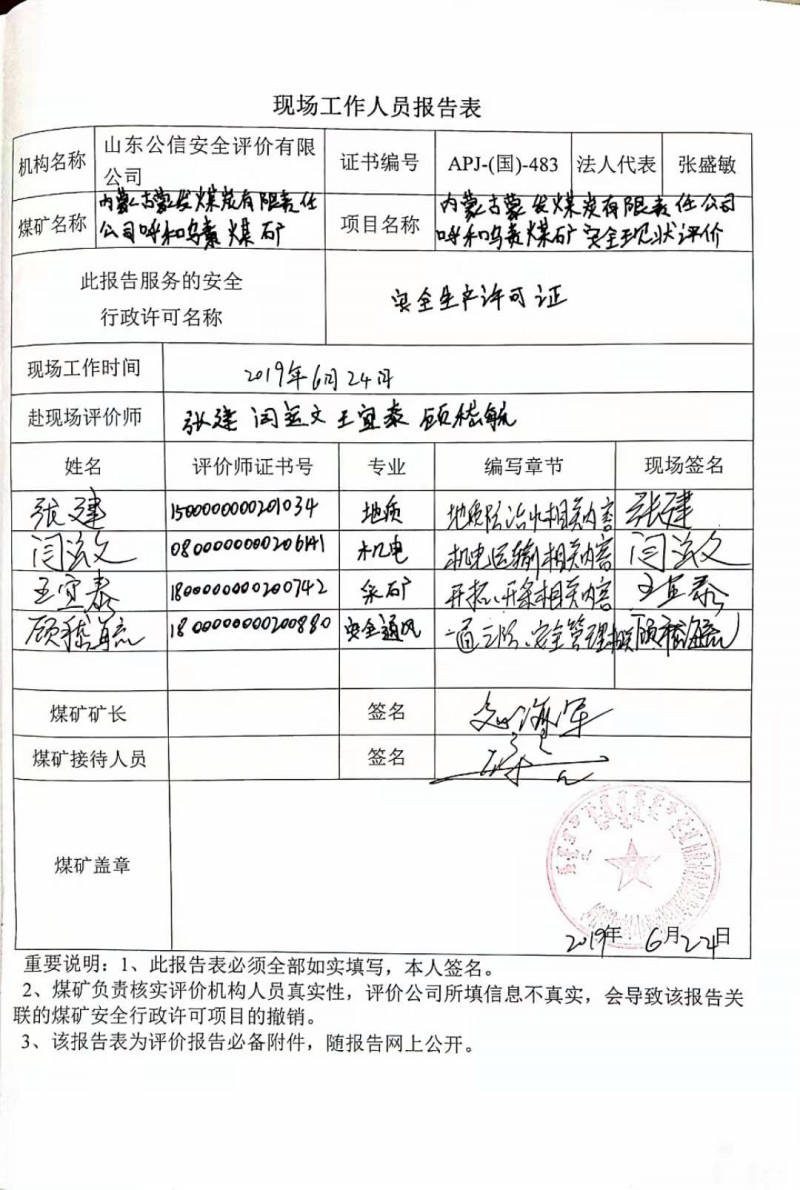 现场工作人员报告表
机构名称 山东公信安全评价有限公司 证书编号 APJ-(国)-483 法人代表 张盛敏
煤矿名称 内蒙古蒙发煤炭有限责任公司呼和乌素煤矿 项目名称 内蒙古蒙发煤炭有限责任公司呼和乌素煤矿安全现状评价
此报告服务的安全
行政许可名称 安全生产许可证
现场工作时间 2019年6月24日
赴现场评价师 张建 王宜泰
姓名 评价师证书号 专业 编写章节 现场签名
张建 1500000000201034 地质 地质防治水相关内容 张建
0800000000206141 机电 机电运输相关内容
王宜泰 1800000000200742 采矿 开拓、开采相关内容 王宜泰
1800000000200880 安全通风 一通三防、安全管理相关
煤矿矿长 签名
煤矿接待人员 签名
煤矿盖章
2019年6月24日
重要说明：1、此报告表必须全部如实填写，本人签名。
2、煤矿负责核实评价机构人员真实性，评价公司所填信息不真实，会导致该报告关
联的煤矿安全行政许可项目的撤销。
3、该报告表为评价报告必备附件，随报告网上公开。